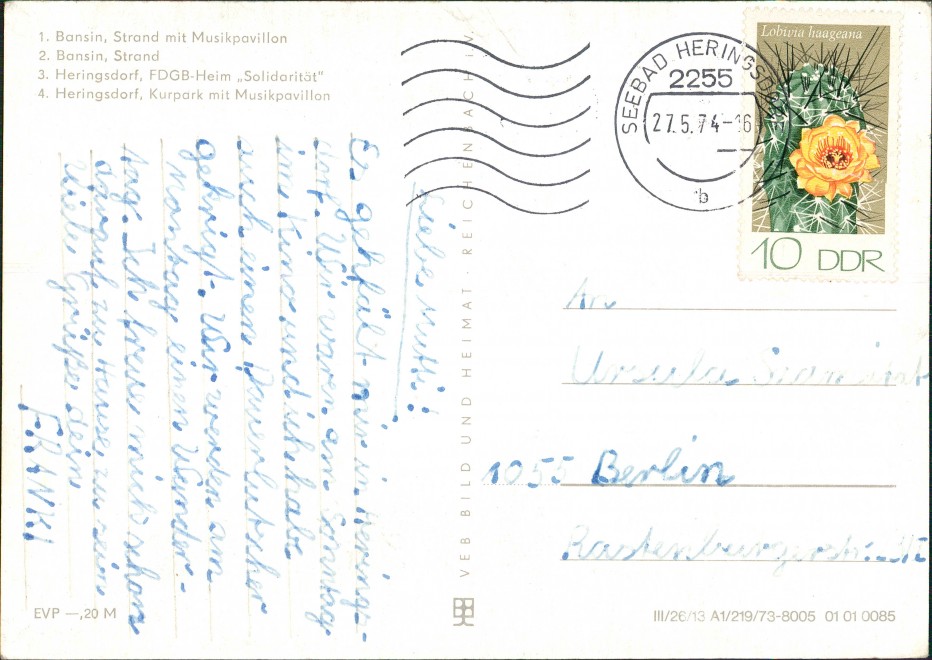 1. Bansin, Strand mit Musikpavillon
2. Bansin, Strand
3. Heringsdorf, FDGB-Heim „Solidarität"
4. Heringsdorf, Kurpark mit Musikpavillon
Liebe Mutti!
Es gefält mir in Herings-
dorf. Wir waren am Sonntag
ins Kino und ich habe
auch einen Dauerlutscher
gekrigt. Wir werden am
Montag einen Wander-
tag. Ich freue mich schon
darauf zu Hause zu sein
Viele Grüße dein
FRANK!
EVP —,20 M
VEB BILD UND HEIMAT · REICHENBACH I. V.
SEEBAD HERINGSDORF
2255
27.5.74-16
b
Lobivia haageana
10 DDR
An
Ursula
1055 Berlin
Rastenburgerstr.
III/26/13 A1/219/73-8005 01 01 0085